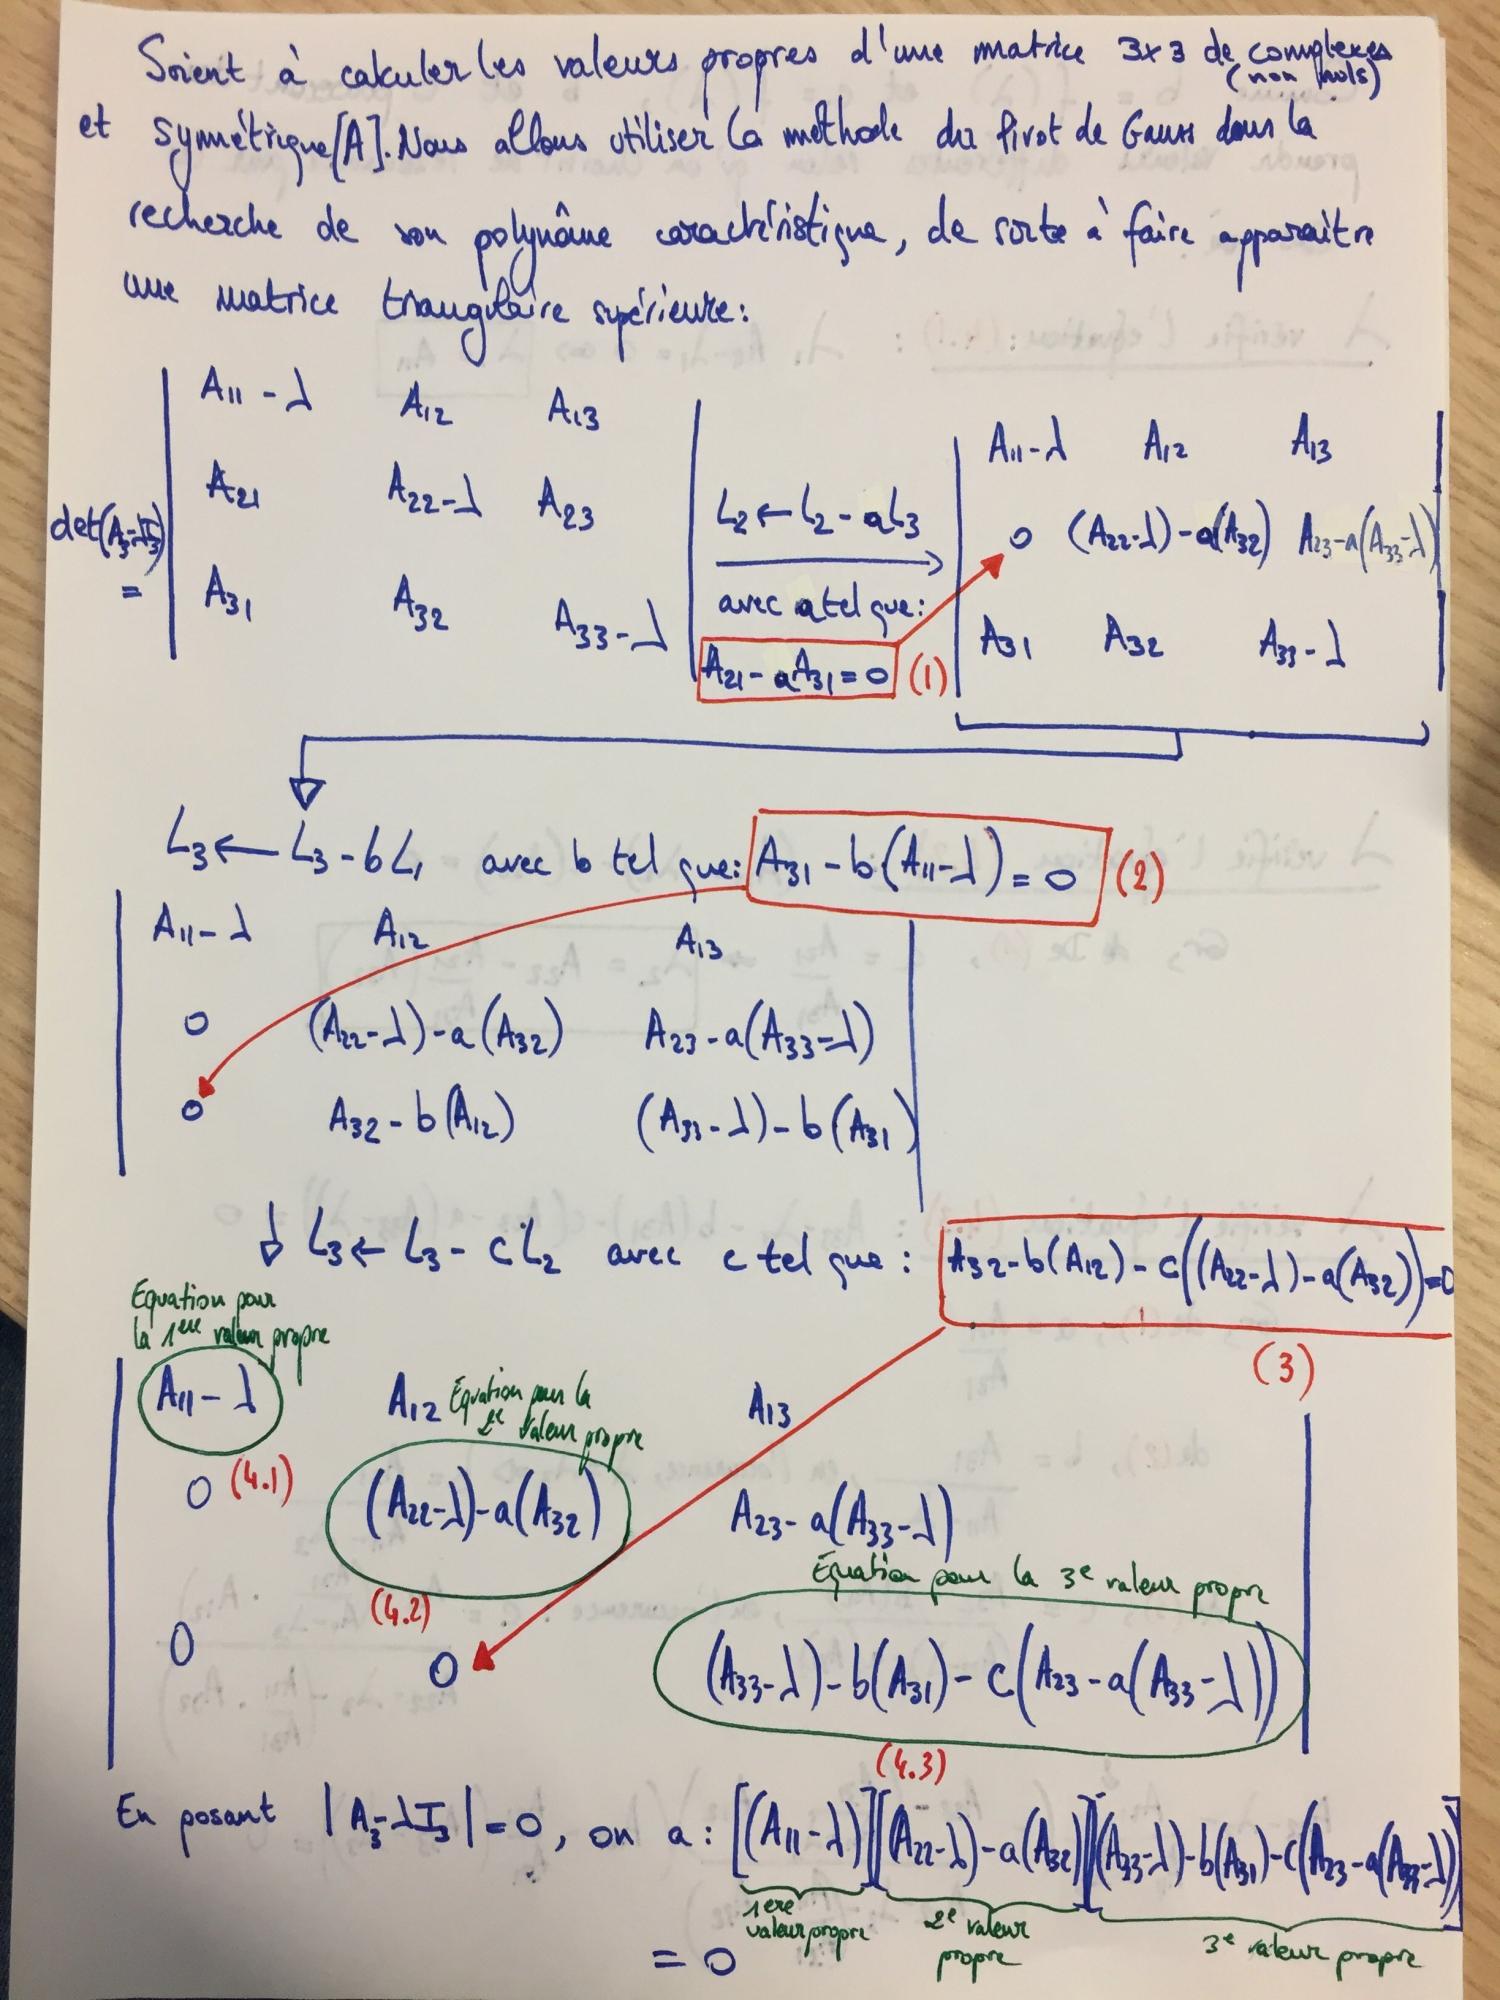 Soient à calculer les valeurs propres d'une matrice 3x3 de complexes
(non nuls)
et symmétrique [A]. Nous allons utiliser la méthode du Pivot de Gauss dans la
recherche de son polynôme caractéristique, de sorte à faire apparaitre
une matrice triangulaire supérieure:
det(A₃-λI₃) =
A₁₁-λ A₁₂ A₁₃
A₂₁ A₂₂-λ A₂₃
A₃₁ A₃₂ A₃₃-λ
L₂ ← L₂ - aL₃
avec a tel que:
A₂₁ - aA₃₁ = 0 (1)
A₁₁-λ A₁₂ A₁₃
0 (A₂₂-λ)-a(A₃₂) A₂₃-a(A₃₃-λ)
A₃₁ A₃₂ A₃₃-λ
L₃ ← L₃ - bL₁ avec b tel que: A₃₁ - b(A₁₁-λ) = 0 (2)
A₁₁-λ A₁₂ A₁₃
0 (A₂₂-λ)-a(A₃₂) A₂₃-a(A₃₃-λ)
0 A₃₂-b(A₁₂) (A₃₃-λ)-b(A₃₁)
L₃ ← L₃ - cL₂ avec c tel que: A₃₂-b(A₁₂)-c((A₂₂-λ)-a(A₃₂))=0
(3)
Equation pour
la 1ère valeur propre
A₁₁-λ A₁₂ A₁₃
(4.1)
Equation pour la
2e valeur propre
0 (A₂₂-λ)-a(A₃₂) A₂₃-a(A₃₃-λ)
(4.2)
Equation pour la 3e valeur propre
0 0 (A₃₃-λ)-b(A₃₁)-c(A₂₃-a(A₃₃-λ))
(4.3)
En posant |A₃-λI₃|=0, on a: [(A₁₁-λ)][(A₂₂-λ)-a(A₃₂)][(A₃₃-λ)-b(A₃₁)-c(A₂₃-a(A₃₃-λ))]
1ère valeur propre
2e valeur propre
3e valeur propre
= 0